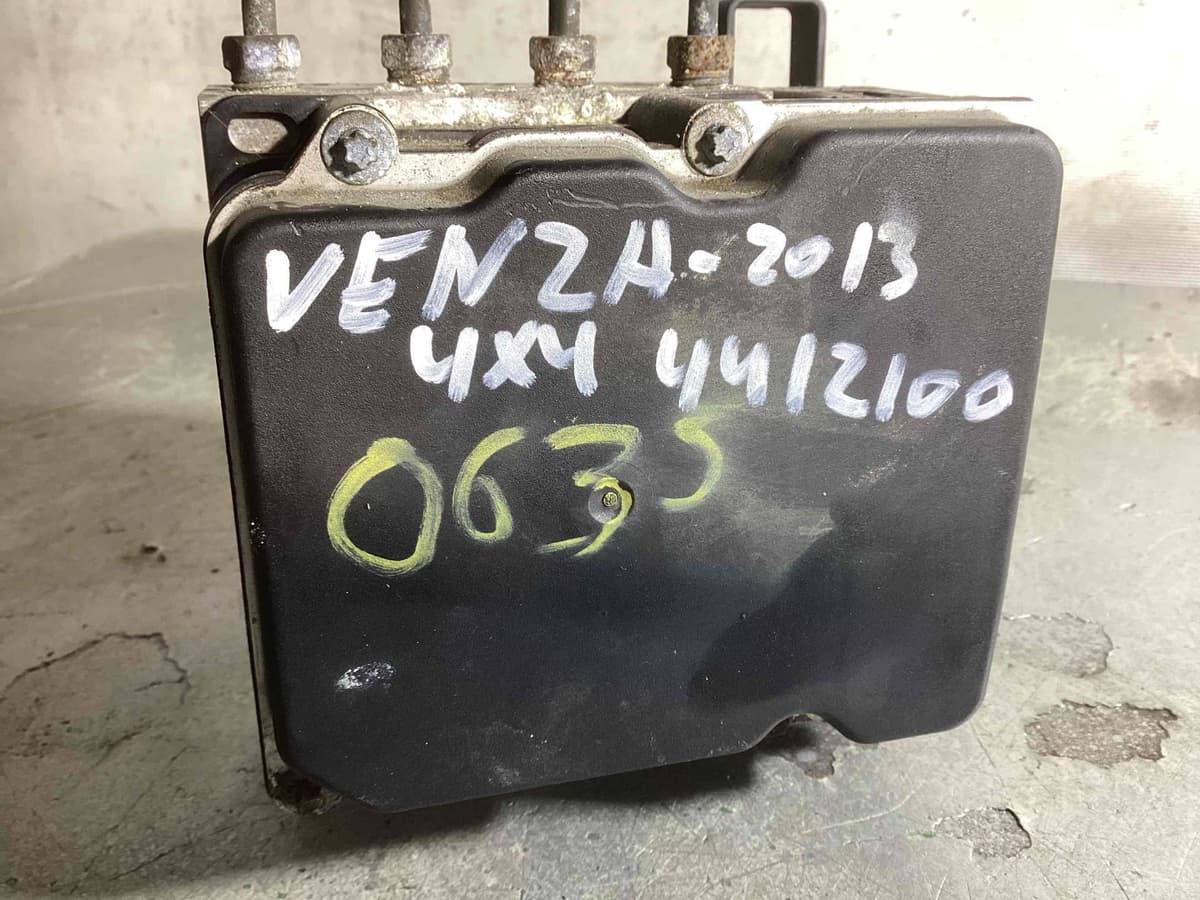 VENZA-2013
4x4 4412100
0635